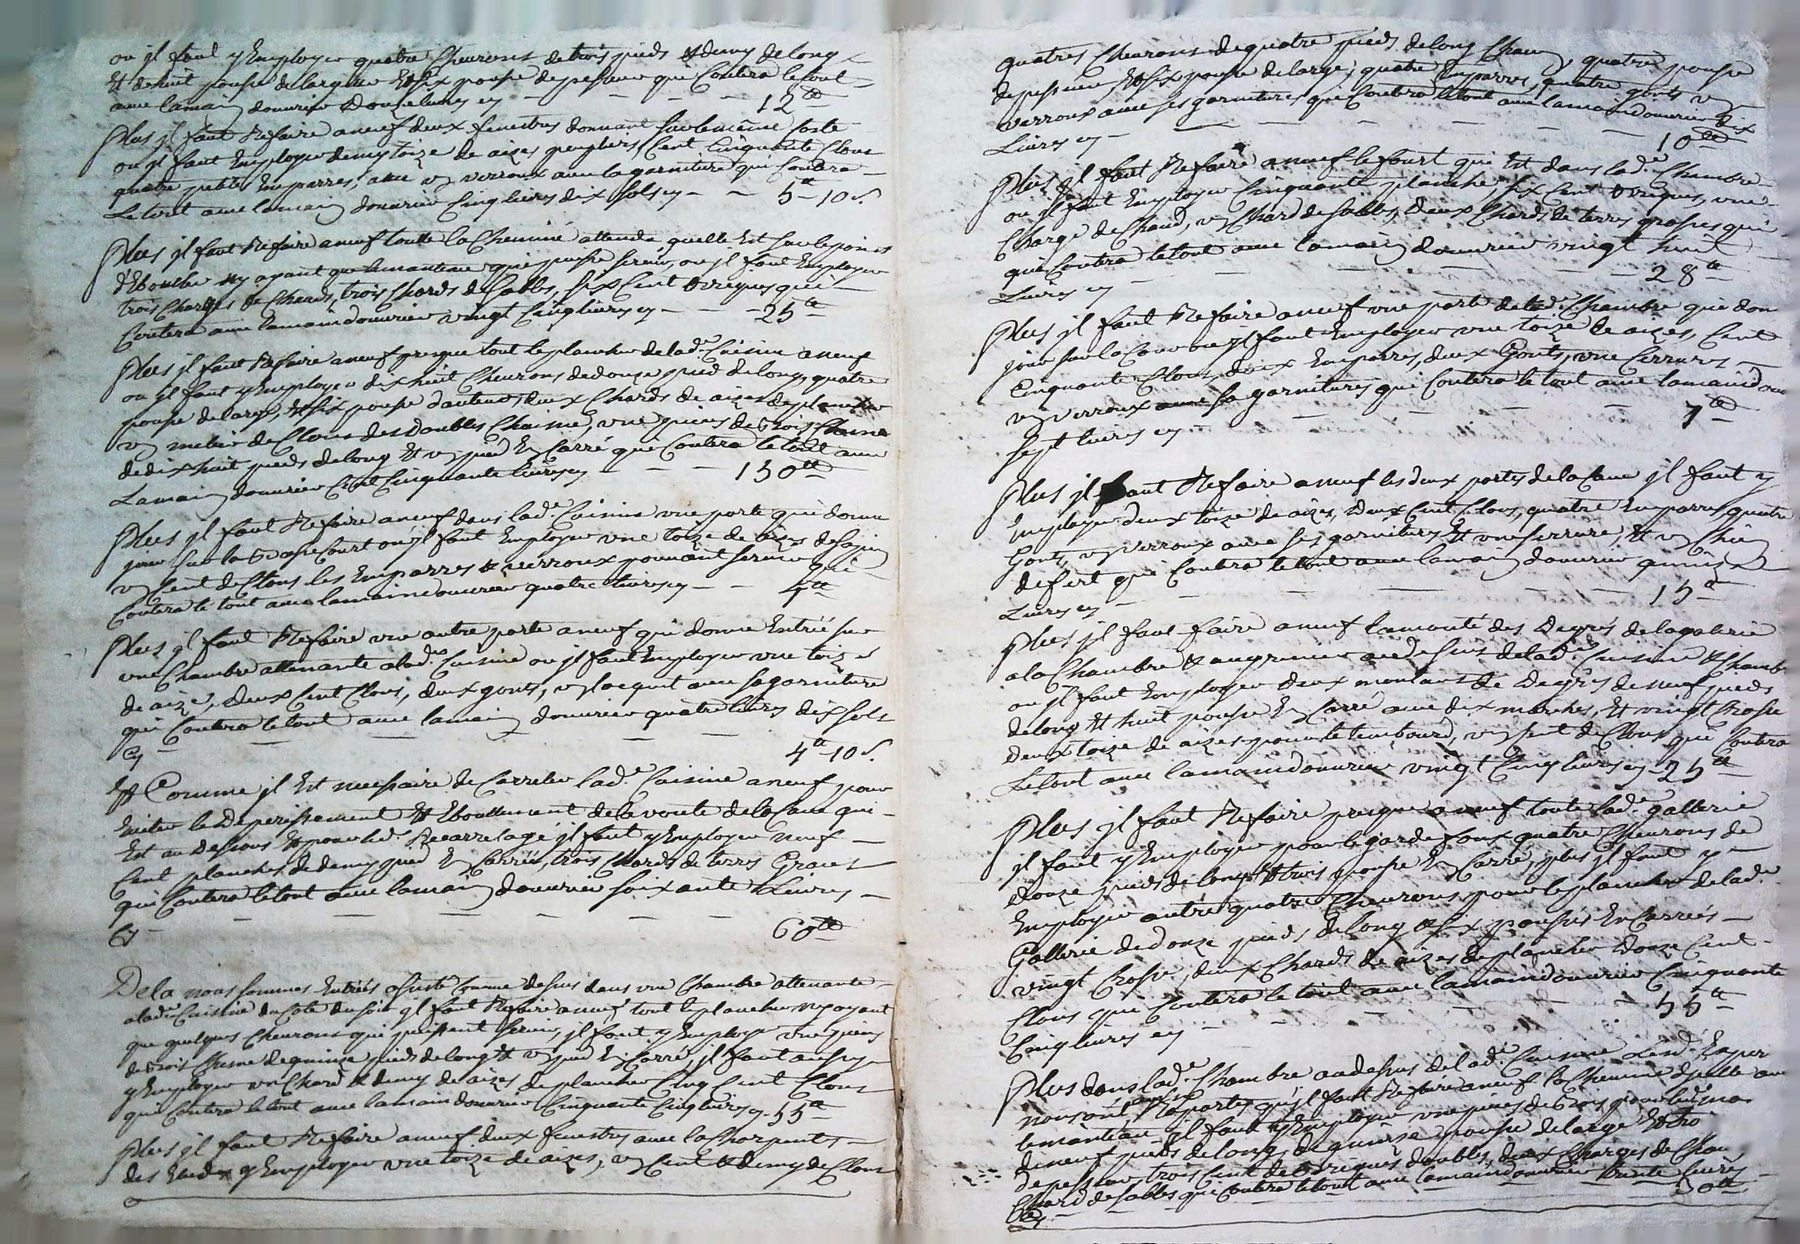 ou jl faut y Employer quatre Cheurons de trois pieds & demy de long
Et de huit pousse de largeur Et six pousse depesseur que Coutera le tout
auec lamain douurier Douze liures cy 12tt
Plus jl faut Refaire aneuf deux fenestres donnant sur lememe Costé
ou jl faut Employer demy toize de aizes Cent Cinquante Clous
quatre petites Emparres, auec vn verroux auec la garniture qui Coutera
Letout auec lamain douurier Cinq liures dix sols cy 5tt 10 s.
Plus jl faut Refaire aneuf toutte la Cheminé attendu quelle Est sur lepoint
d'Eboulher ny ayant que lemanteau qui puisse seruir, ou jl faut Employer
trois Charges de Cheaud, trois Chards de Sable, six Cent Briques qui
Coutera auec lamain douurier vingt Cinq liures cy 25tt
Plus jl faut Refaire aneuf presque tout leplancher delad.e Cuisine aneuf
ou jl faut y Employer dix huit Cheurons dedouze pied de long, quatre
pousse de large, Et six pousse d'auteur, deux Chards de aizes de plancher
vn de Clous des Doubles Chaisne, vne pieces de Bois Chaine
de dix huit pieds de long Et vn pied En Carré que Coutera le tout auec
Lamain douurier Cent Cinquante liures cy 150tt
Plus jl faut Refaire aneuf dans lad.e Cuisine vne porte qui donne
jour sur la Basse Court ou jl faut Employer vne toize de aizes de sapin
vn Cent de Clous les Emparres & verroux pouuant seruir qui
Coutera le tout auec lamain douurier quatre liures cy 4tt
Plus jl faut Refaire vne autre porte aneuf qui donne Entrée sur
vne Chambre attenante alad.e Cuisine ou jl faut Employer vne toize
de aize, Deux Cent Clous, deux gonts, vn lacquet auec sa garniture
qui Coutera le tout auec lamain douurier quatre liures dix sols
Cy 4tt 10 s.
Et Comme jl Est necessaire de Carreler lad.e Cuisine aneuf pour
Euiter le Deperissement Et Eboullement dela voute dela Caue qui
Est au Dessous Et pour led. Recarrelage jl faut y Employer neuf
Cent planches de demy pied En Carrés, trois Chards de terres Grasses
qui Coutera le tout auec lamain douurier soixante Liures
Cy 60tt
Dela nous sommes Entrés assisté Comme dessus dans vne Chambre attenante
alad.e Cuisine du Coté du soir jl faut Refaire aneuf tout leplancher ny ayant
que quelques Cheurons qui puissent seruir, jl faut y Employer vne pieces
de Bois Chaine de quinze pieds de long Et vn pied En Carré, jl faut aussy
y Employer vn Chard & demy de aizes de plancher Cinq Cent Clous
que Coutera le tout auec lamain douurier Cinquante Cinq liures cy 55tt
Plus jl faut Refaire aneuf deux fenestres auec la Charpente
des y Employer vne toize de aizes, vn Cent & demy de Clous
quatres Cheurons de quatre pieds de long Chacun quatres pousse
depesseur Et six pousse de large, quatre Emparres, quatre gonts vn
verroux auec ses garnitures qui Coutera le tout auec lamain douurier dix
Liures cy 10tt
Plus jl faut Refaire aneuf lefourt qui Est dans lad.e Chambre
ou jl faut Employer Cinquante planches, six Cent Briques, vne
Charge de Chaud, vn Chard de sable, Deux Chards de terres grasses qui
que Coutera letout auec lamain douurier vingt huit
Liures cy 28tt
Plus jl faut Refaire aneuf vne porte de lad.e Chambre que don
jour sur la Cour ou jl faut Employer vne toize de aizes, Cent
Cinquante Clous, deux Emparres, deux Gonts, vne Cerrures
vn verroux auec sa garnitures qui Coutera le tout auec lamain dou
sept liures cy 7tt
Plus jl faut Refaire aneuf les deux portes dela Caue jl faut y
Employer deux toize de aizes, Deux Cent Clous, quatre Emparres quatre
Gonts, vn verroux auec ses garnitures Et vne serrure, Et vn
de fert que Coutera letout auec lamain douurier quinze
Liures cy 15tt
Plus jl faut faire aneuf lamonté des Degrés dela galerie
ala Chambre & augrenier audessus delad.e Cuisine & Chamb
ou jl faut Employer deux montans de Degrés de neuf pieds
delong Et huit pousse En Carré auec dix marches, Et vingt Bosse
deux toize de aizes pour le vn sent de Clous que Coutera
Letout auec lamain douurier vingt Cinq liures cy 25tt
Plus jl faut Refaire presque aneuf toute lad.e gallerie
jl faut y Employer pour le garde foux quatre Cheurons de
douze pieds de long & trois pousse En Carré, plus jl faut y
Employer autres quatre Cheurons pour leplancher delad.e
Gallerie de douze pieds de long & six pousses En Carrés
vingt Bosse, deux Chards de aizes de plancher Douze Cent
Clous que Coutera le tout auec lamain douurier Cinquante
Cinq liures cy 55tt
Plus dans lad.e Chambre audessus de lad.e Cuisine Lesd. Exper
nous ont Raporté qu'jl faut Refaire aneuf la Cheminé d'jcelle auec
lemanteau jl faut y Employer vne pieces de Bois pour led. man
de neuf pieds de long, de quinze pousse de large Et tro
de pesseur, trois Cent de Briques doubles, deux Charges de Chau
Chard de sables que Coutera letout auec lamain douurier trente liures
Cy 30tt